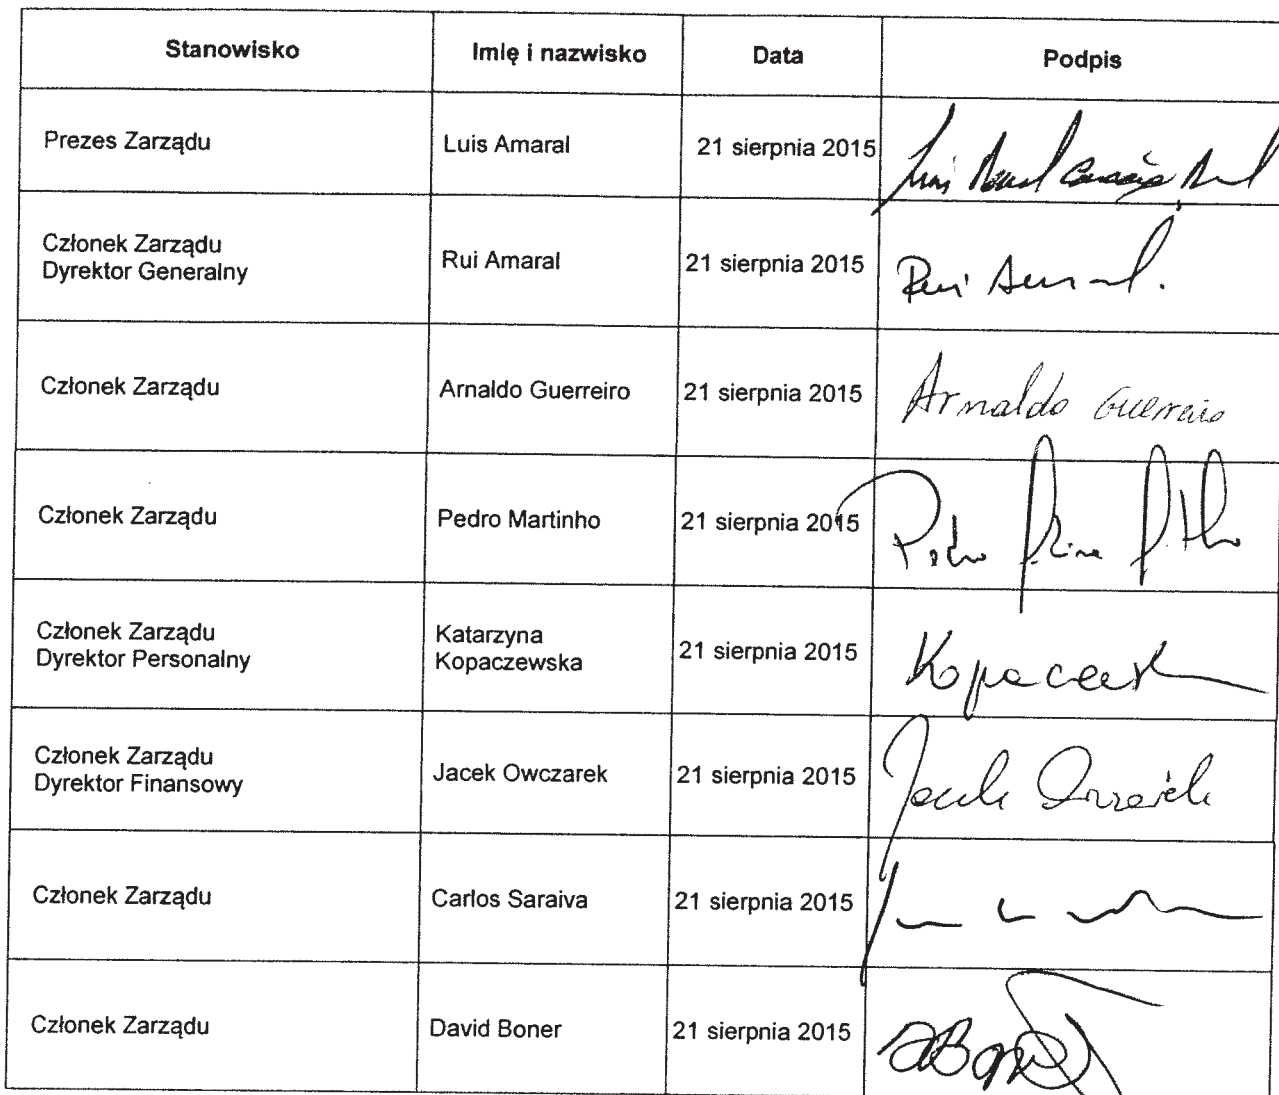 Stanowisko Imię i nazwisko Data Podpis
Prezes Zarządu Luis Amaral 21 sierpnia 2015
Członek Zarządu
Dyrektor Generalny Rui Amaral 21 sierpnia 2015 Rui Amaral.
Członek Zarządu Arnaldo Guerreiro 21 sierpnia 2015 Arnaldo Guerreiro
Członek Zarządu Pedro Martinho 21 sierpnia 2015 Pedro
Członek Zarządu
Dyrektor Personalny
Katarzyna
Kopaczewska
21 sierpnia 2015
Członek Zarządu
Dyrektor Finansowy Jacek Owczarek 21 sierpnia 2015 Jacek Owczarek
Członek Zarządu Carlos Saraiva 21 sierpnia 2015
Członek Zarządu David Boner 21 sierpnia 2015